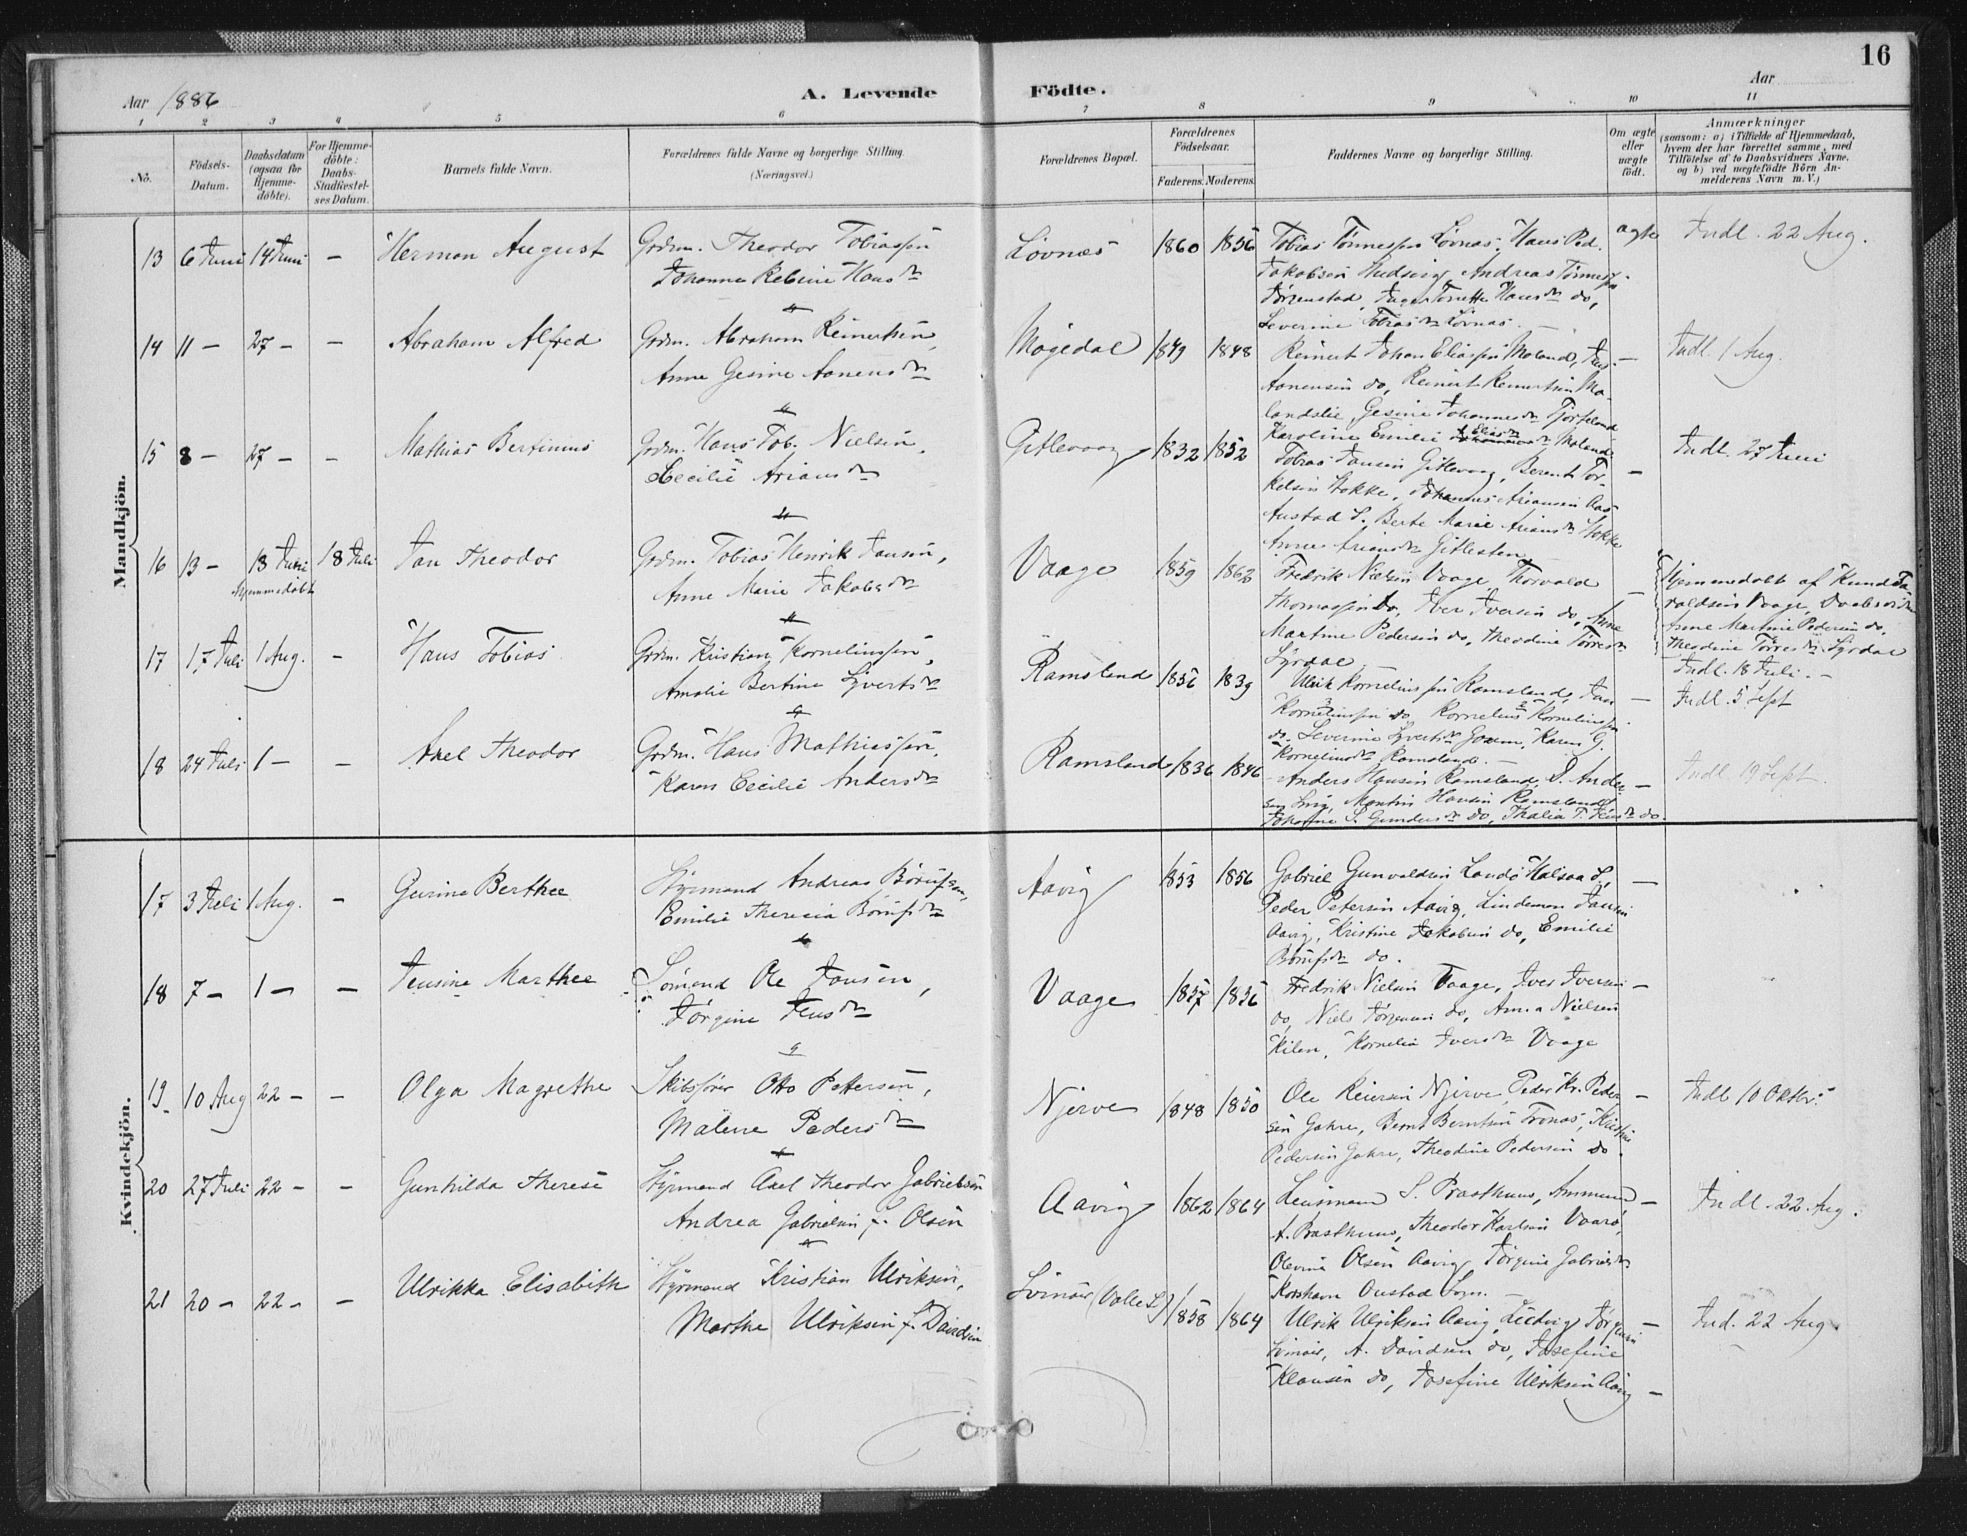 16
Aar 1886
A. Levende
Födte.
Aar
1 2 3 4 5 6 7 8 9 10 11
No.
Födsels-
Datum.
Daabsdatum
(ogsaa for
Hjemme-
döbte).
For Hjemme-
döbte:
Daabs-
Stadfæstel-
ses Datum.
Barnets fulde Navn.
Forældrenes fulde Navne og borgerlige Stilling.
(Næringsvei.)
Forældrenes Bopæl.
Forældrenes
Födselsaar.
Faderens. Moderens.
Faddernes Navne og borgerlige Stilling.
Om ægte
eller
uægte
födt.
Anmærkninger
(saasom: a) i Tilfælde af Hjemmedaab,
hvem der har forrettet samme, med
Tilföielse af to Daabsvidners Navne,
og b) ved uægtefödte Börn An-
melderens Navn m. V.)
Mandkjön.
13 6 Juni 14 Juni - Herman August
Grdm. Theodor Tobiassen
Johanne Rebine Hansdr
Lövnæs 1860 1856
Tobias Tönnessen Lövnæs, Hans Ped.
Jakobsen, Andreas Tönnessen
Hansdr do,
Severine Tobiasdr Lövnæs.
ægte
Indl. 22 Aug.
14 11 - 27 - - Abraham Alfred
Grdm. Abraham Reinertsen,
Anne Gesine Aanensdr
Mögedal 1849 1848
Reinert Johan Eliassen Moland, Jens
Aanensen do, Reinert Reinertsen Mo-
landslie, Gesine Johannesdr
Karoline Emilie Eliasdr Moland.
-
Indl. 1 Aug.
15 8 - 27 - - Mathias Bertinius
Grdm. Hans Tob. Nielsen,
Cecilie Ariansdr
Gitlevaag 1832 1852
Tobias Jansen Gitlevaag, Berent Tor-
kelsen Stokke, Johannes Ariansen Aas
Austad S. Berte Marie Ariansdr Stokke
Anne Ariansdr Gitlesten.
-
Indl. 27 Juni
16 13 - 13 Juni 18 Juli Jan Theodor
Hjemmedöbt
Grdm. Tobias Henrik Jansen,
Anne Marie Jakobsdr
Vaage 1859 1862
Fredrik Nielsen Vaage, Thorvald
Thomassen do, Iver Iversen do, Anne
Martine Pedersen do, Theodine Törresdr
Lyrdal
-
Hjemmedöbt af Knud Ta-
raldsen Vaage, Daabsvidn
Anne Martine Pedersen do,
Theodine Törresdr Lyrdal
Indl. 18 Juli. -
17 17 Juli 1 Aug. - Hans Tobias
Grdm. Kristian Kornelinssen,
Amalie Bertine Syvertsdr
Ramsland 1856 1839
Ulrik Kornelinssen Ramsland, Jan
Kornelinssen do, Kornelius Kornelinssen
do, Severine Syvertsdr, Karen G.
Kornelinsdr Ramsland. -
-
Indl. 5 Sept
18 24 Juli 1 - - Axel Theodor
Grdm. Hans Mathiassen,
Karen Cecilie Andersdr
Ramsland 1836 1846
Anders Hansen Ramsland, S. Ander-
sen, Martin Hansen Ramsland
S. Gundersdr do, Thalia T. Jensdr do.
-
Indl 19 Sept.
Kvindekjön.
17 3 Juli 1 Aug. - Gurine Berthee
Styrmand Andreas Börufsen,
Emilie Theresia Börufsdr
Aavig 1853 1856
Gabriel Gunvaldsen Landö Halsaa S,
Peder Petersen Aavig, Lindeman Jansen
Aavig, Kristine Jakobsen do, Emilie
Börufsdr do.
-
18 7 - 1 - - Jensine Marthee
Sömand Ole Jansen,
Jörgine Jensdr
Vaage 1857 1856
Fredrik Nielsen Vaage, Iver Iversen
do, Niels Jörgensen do, Anna Nielsen
Kilen, Kornelia Iversdr Vaage
-
19 10 Aug 22 - - Olga Magrethe
Skibsförer Otto Pettersen,
Malene Pedersdr
Njerve 1848 1850
Ole Reiersen Njerve, Peder Kr. Peder-
sen Gahre, Bernt Berntsen Fronæs, Kristine
Pedersen Gahre, Theodine Pedersen do
-
Indl 10 Oktbr.
20 27 Juli 22 - - Gunhilda Therese
Styrmand Axel Theodor Gabrielsen
Andrea Gabrielsen f. Olsen
Aavig 1862 1864
Leusmann S. Prasthuus, Ammund
A. Prasthuus, Theodor Karlsen Vaarö,
Olevine Olsen Aavig, Jörgine Gabrielsdr
Korshavn Austad Sogn. -
-
Indl. 22 Aug.
21 20 - 22 - - Ulrikka Elisabeth
Styrmand Kristian Ulriksen,
Marthe Ulriksen f. Davidsen
Svinör (Valle S) 1858 1864
Ulrik Ulriksen Aavig, Ludvig Jörgensen
Svinör, A. Davidsen do, Josefine
Klausen do, Josefine Ulriksen Aavig
-
Ind. 22 Aug.